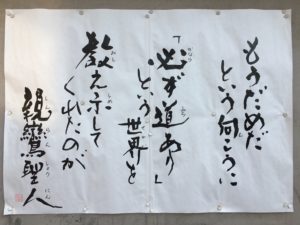 もうだめだ
という向こうに
「必ず道あり」
という世界を
教え示して
くれたのが
親鸞聖人